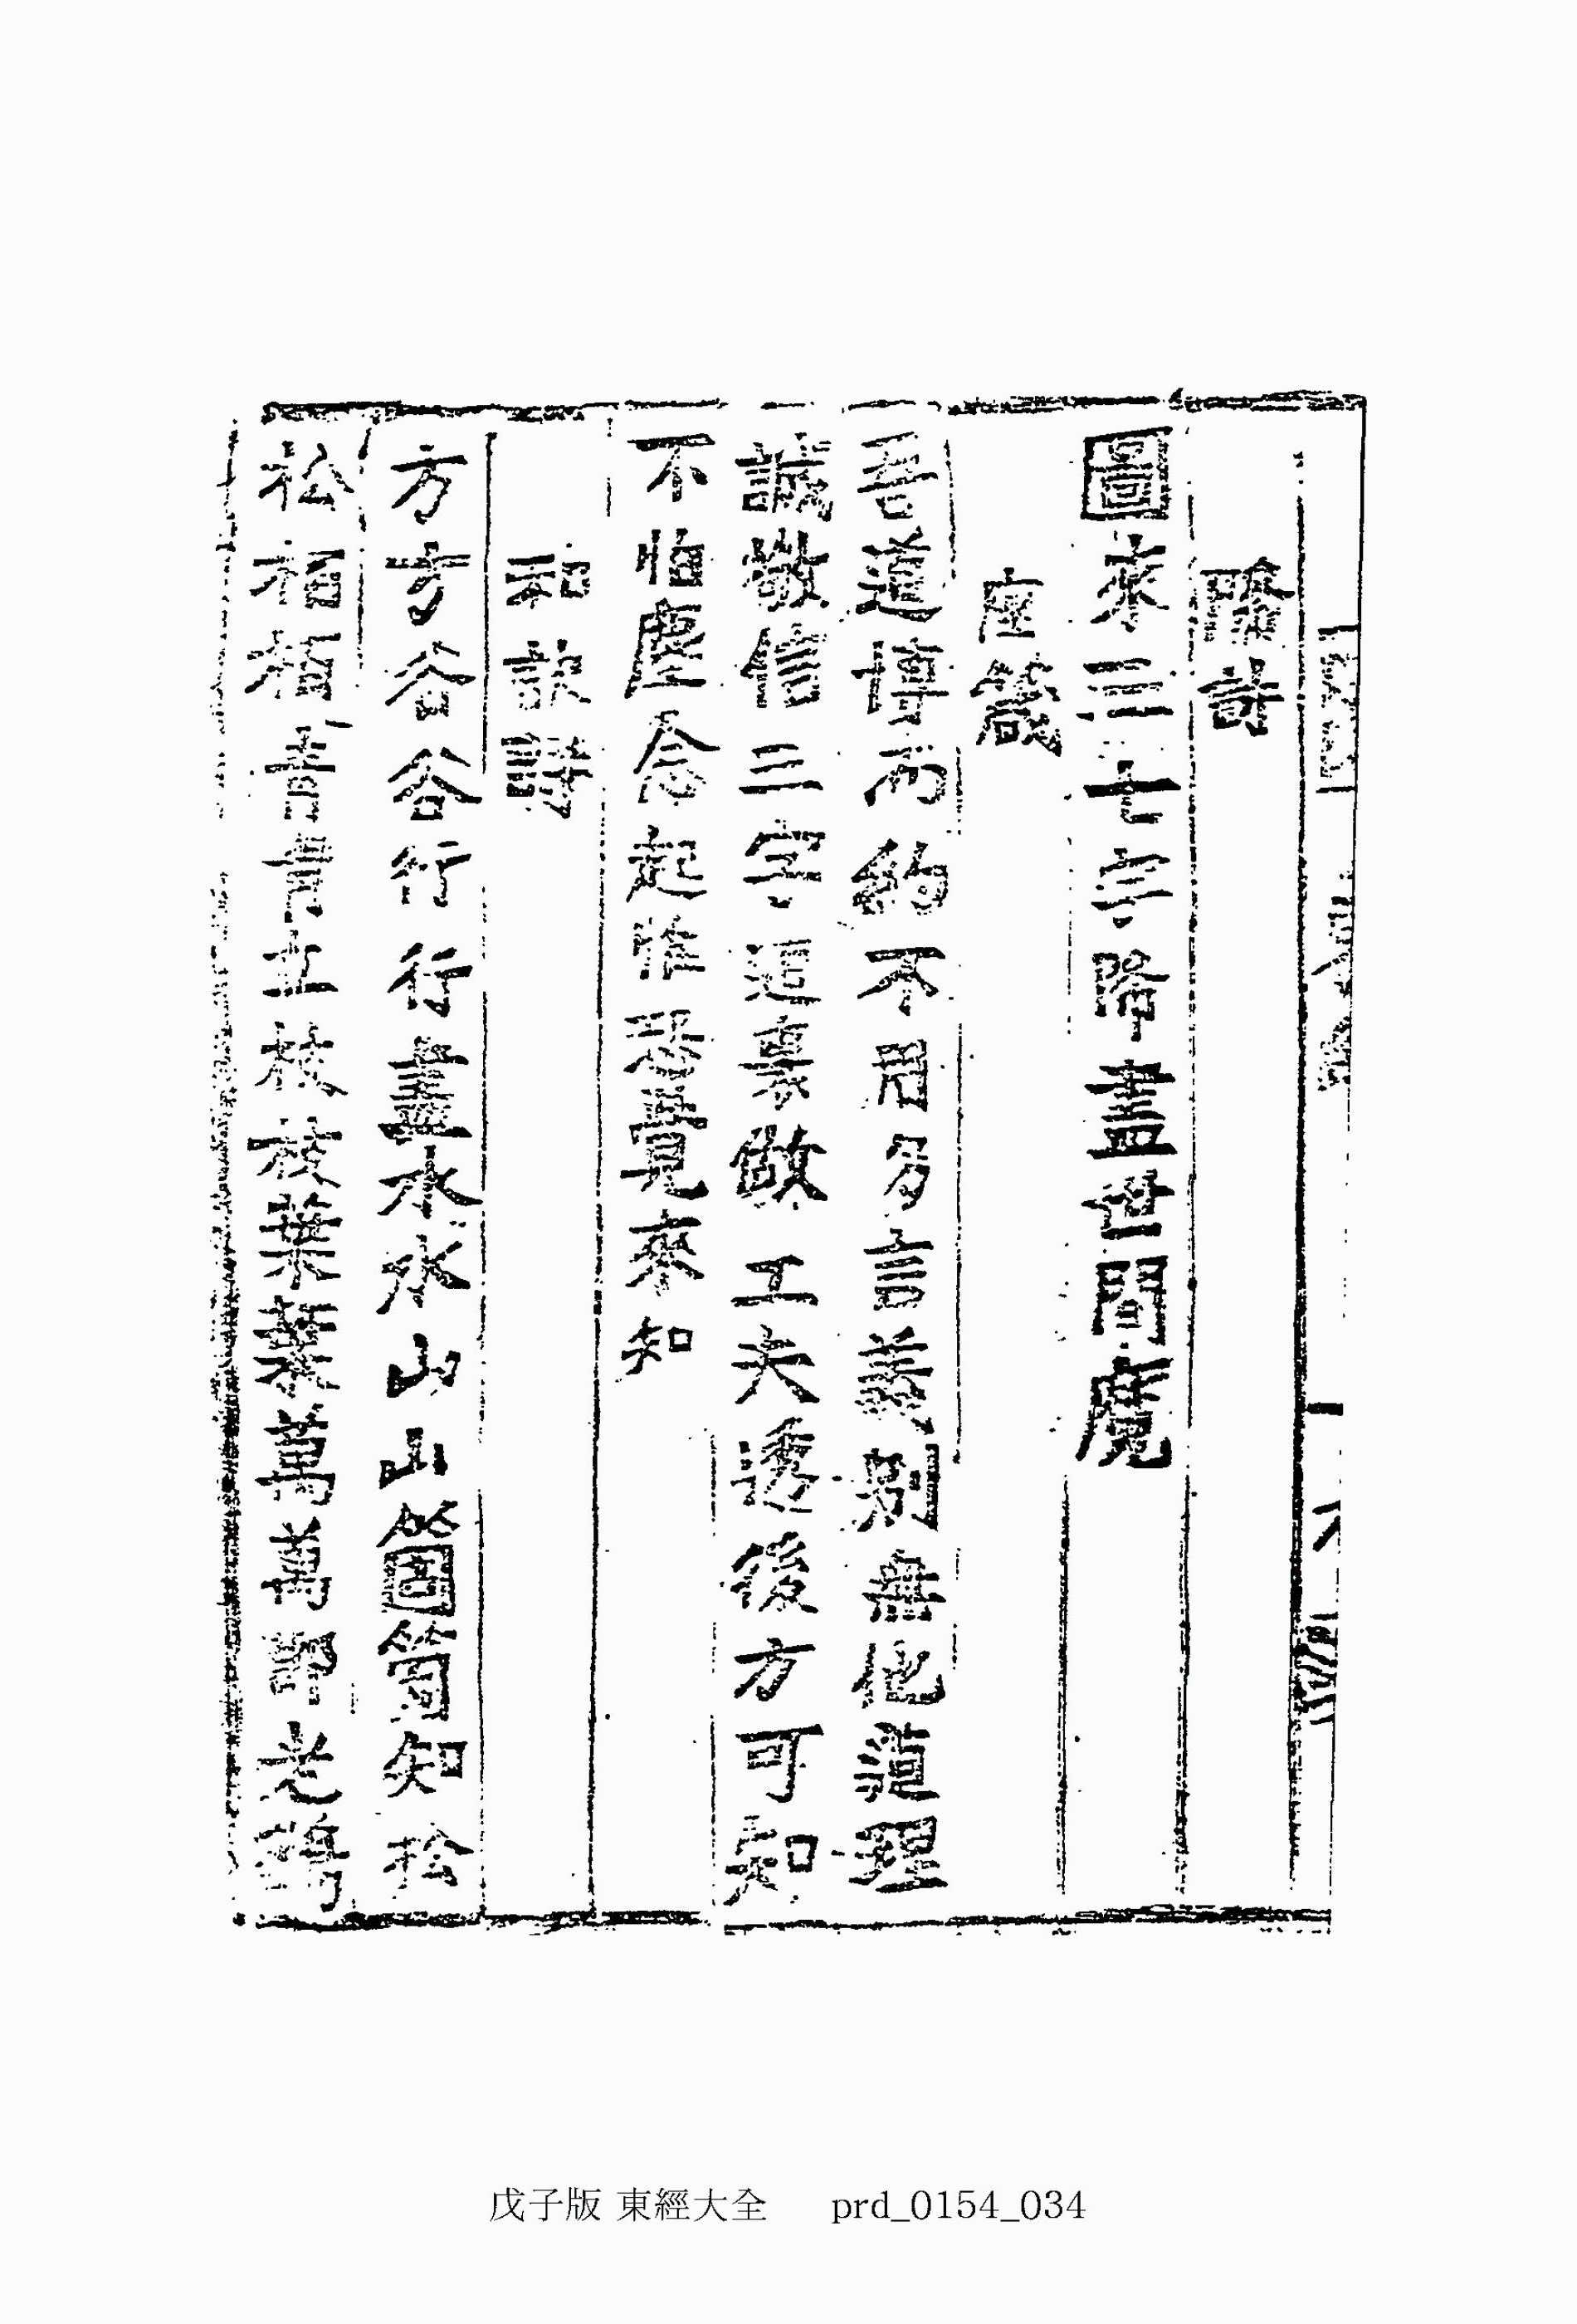 降詩
圖來三七字降盡世間魔
座箴
吾道博而約不用多言義別無他道理
誠敬信三字這裏做工夫透後方可知
不怕塵念起惟恐覺來知
和訣詩
方方谷谷行行盡水水山山箇箇知松
松栢栢青青立枝枝葉葉萬萬節老鶴
戊子版 東經大全 prd_0154_034